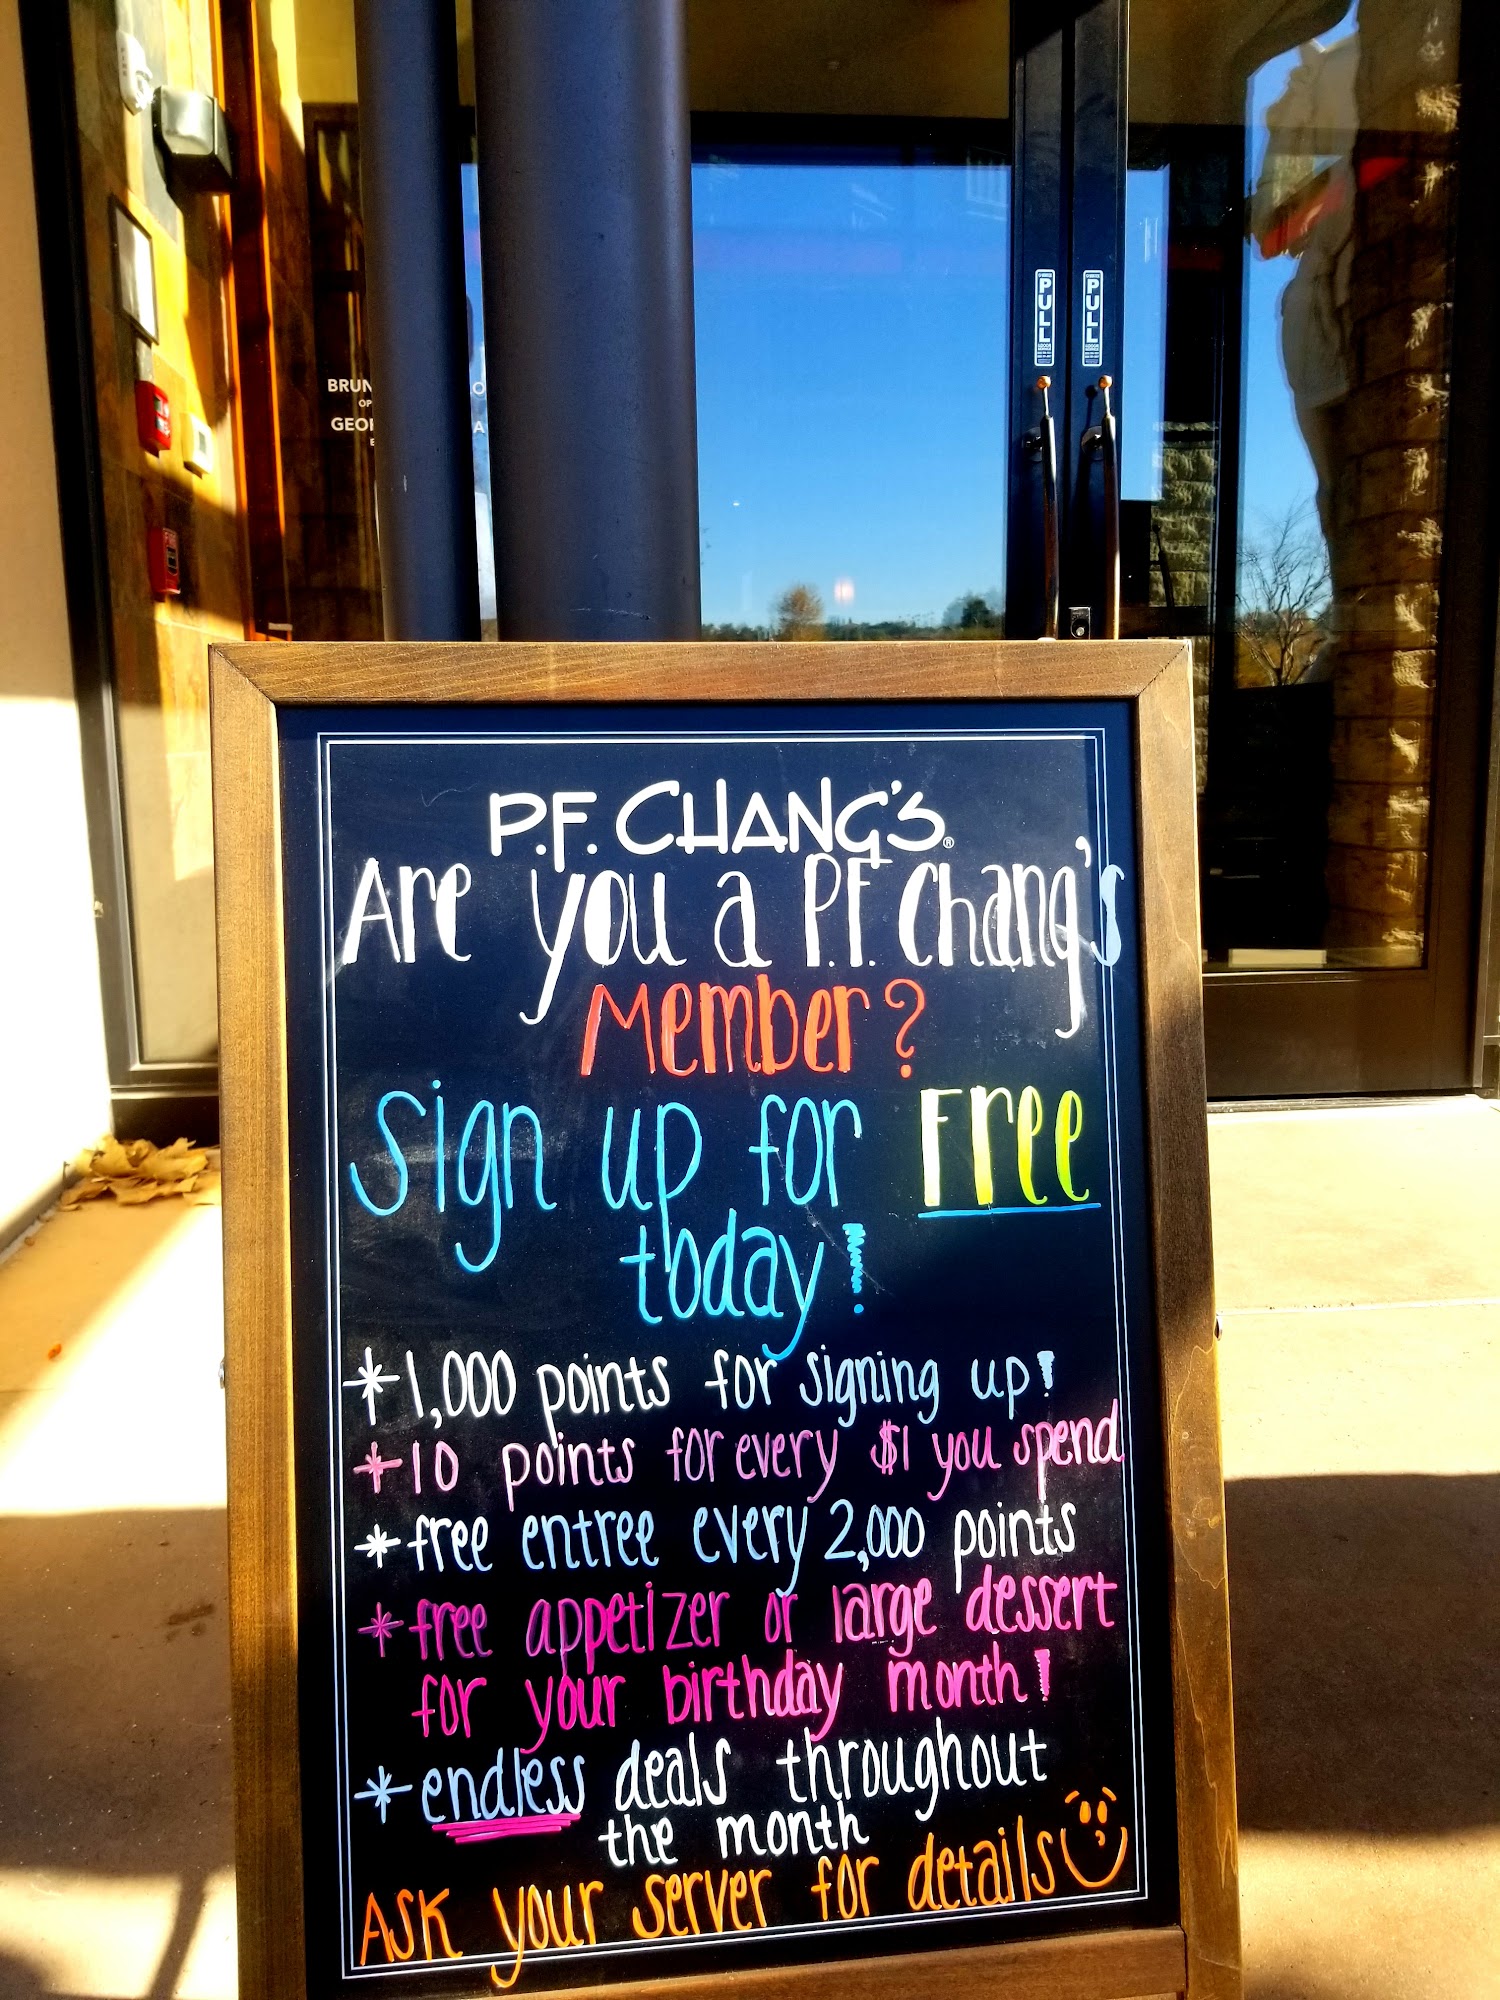 PULL
PULL
BRUN
GEOR
P.F. CHANG'S®
Are you a P.F. Chang's
Member?
Sign up for Free
today!
*1,000 points for signing up!
*10 points for every $1 you spend
*free entree every 2,000 points
*free appetizer or large dessert
for your birthday month!
*endless deals throughout
the month
Ask your server for details